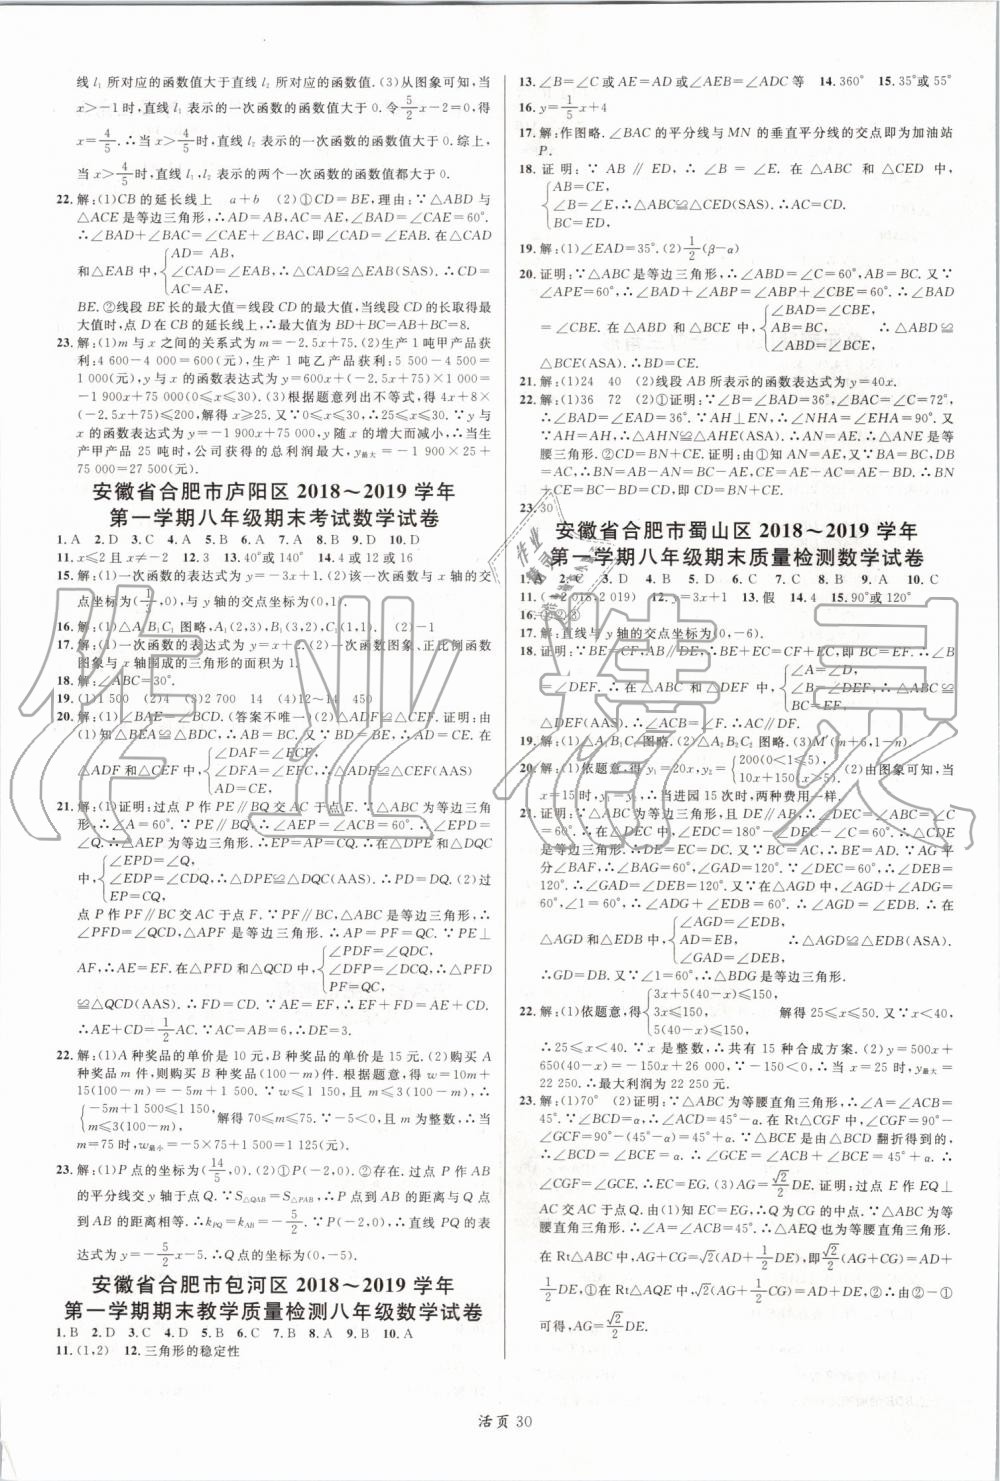 线 l₁ 所对应的函数值大于直线 l₂ 所对应的函数值. (3)从图象可知,当
x>−1时,直线 l₁ 表示的一次函数的函数值大于0. 令5/2x−2=0,得
x=4/5. ∴当 x>4/5时,直线 l₂ 表示的一次函数的函数值大于0. 综上,
当 x>4/5时,直线 l₁,l₂ 表示的两个一次函数的函数值都大于0.
22. 解:(1)CB的延长线上 a+b (2)①CD=BE,理由:∵△ABD与
△ACE是等边三角形,∴AD=AB,AC=AE,∠BAD=∠CAE=60°.
∴∠BAD+∠BAC=∠CAE+∠BAC,即∠CAD=∠EAB. 在△CAD
和△EAB中,{AD=AB, ∠CAD=∠EAB, AC=AE, ∴△CAD≌△EAB(SAS). ∴CD=
BE. ②线段BE长的最大值=线段CD的最大值,当线段CD的长取得最
大值时,点D在CB的延长线上,∴最大值为BD+BC=AB+BC=8.
23. 解:(1)m与x之间的关系式为m=−2.5x+75. (2)生产1吨甲产品获
利:4 600−4 000=600(元),生产1吨乙产品获利:5 500−4 500=
1 000(元),y与x的函数表达式为y=600x+(−2.5x+75)×1 000=
−1 900x+75 000(0≤x≤30). (3)根据题意列出不等式,得4x+8×
(−2.5x+75)≤200,解得x≥25. 又∵0≤x≤30,∴25≤x≤30. ∵y与
x的函数表达式为y=−1 900x+75 000,y随x的增大而减小,∴当生
产甲产品25吨时,公司获得的总利润最大,y最大=−1 900×25+
75 000=27 500(元).
安徽省合肥市庐阳区 2018～2019 学年
第一学期八年级期末考试数学试卷
1. A 2. D 3. C 4. A 5. B 6. C 7. A 8. B 9. D 10. D
11. x≤2且x≠−2 12. 3 13. 40°或140° 14. 4或12或16
15. 解:(1)一次函数的表达式为y=−3x+1. (2)该一次函数与x轴的交
点坐标为(1/3,0),与y轴的交点坐标为(0,1).
16. 解:(1)△A₁B₁C₁图略,A₁(2,3),B₁(3,2),C₁(1,1). (2)−1
17. 解:(1)一次函数的表达式为y=−x+2. (2)一次函数图象、正比例函数
图象与x轴围成的三角形的面积为1.
18. 解:∠ABC=30°.
19. (1)1 500 (2)4 (3)2 700 14 (4)12～14 450
20. 解:(1)∠BAE=∠BCD. (答案不唯一) (2)△ADF≌△CEF. 证明:由
(1)知△BEA≌△BDC,∴AB=BC. 又∵BD=BE,∴AD=CE. 在
△ADF和△CEF中,{∠DAF=∠ECF, ∠DFA=∠EFC, AD=CE, ∴△ADF≌△CEF(AAS)
21. 解:(1)证明:过点P作PE∥BQ交AC于点E. ∵△ABC是等边三角
形,∴∠A=60°. ∵PE∥BQ,∴∠AEP=∠ACB=60°,∠EPD=
∠Q. ∴△AEP为等边三角形. ∴EP=AP=CQ. ∴在△DPE和△DQC
中,{∠EPD=∠Q, ∠EDP=∠CDQ, EP=CQ, ∴△DPE≌△DQC(AAS). ∴PD=DQ. (2)过
点P作PF∥BC交AC于点F. ∵PF∥BC,△ABC是等边三角形,∴
∠PFD=∠QCD,△APF是等边三角形. ∴AP=PF=QC. ∵PE⊥
AF,∴AE=EF. 在△PFD和△QCD中,{∠PDF=∠QDC, ∠DFP=∠DCQ, PF=QC, ∴△PFD
≌△QCD(AAS). ∴FD=CD. ∵AE=EF,∴EF+FD=AE+CD.
∴AE+CD=1/2AC. ∵AC=AB=6,∴DE=3.
22. 解:(1)A种奖品的单价是10元,B种奖品的单价是15元. (2)购买A
种奖品m件,则购买B种奖品(100−m)件. 根据题意,得w=10m+
15(100−m)=−5m+1 500. ∵w≤1 150,m≤3(100−m),∴
{−5m+1 500≤1 150, m≤3(100−m), 解得70≤m≤75. ∵−5<0,∴w随m的增大而减小,∴当
m=75时,w最小=−5×75+1 500=1 125(元).
23. 解:(1)P点的坐标为(14/5,0). (2)①P(−2,0). ②存在. 过点P作AB
的平分线交y轴于点Q. ∵S△QAB=S△PAB,∴P点到AB的距离与Q点
到AB的距离相等. ∴kPQ=kAB=−5/2. ∵P(−2,0),∴直线PQ的表
达式为y=−5/2x−5. ∴Q点的坐标为(0,−5).
安徽省合肥市包河区 2018～2019 学年
第一学期期末教学质量检测八年级数学试卷
1. B 2. D 3. C 4. D 5. B 6. C 7. B 8. A 9. B 10. A
11. (1,2) 12. 三角形的稳定性
13. ∠B=∠C或AE=AD或∠AEB=∠ADC等 14. 360° 15. 35°或55°
16. y=1/5x+4
17. 解:作图略. ∠BAC的平分线与MN的垂直平分线的交点即为加油站
P.
18. 证明:∵AB∥ED,∴∠B=∠E. 在△ABC和△CED中,
{AB=CE, ∠B=∠E, BC=ED, ∴△ABC≌△CED(SAS). ∴AC=CD.
19. 解:(1)∠EAD=35°. (2)1/2(β−α)
20. 证明:∵△ABC是等边三角形,∴∠ABD=∠C=60°,AB=BC. 又∵
∠APE=60°,∴∠BAD+∠ABP=∠ABP+∠CBE=60°. ∴∠BAD
=∠CBE. 在△ABD和△BCE中,{∠BAD=∠CBE, AB=BC, ∠ABD=∠BCE, ∴△ABD≌
△BCE(ASA). ∴BD=CE.
21. 解:(1)24 40 (2)线段AB所表示的函数表达式为y=40x.
22. 解:(1)36 72 (2)①证明:∵∠BAD=36°,∠B=∠C=72°,
∴∠BAD=∠EAD=36°. ∵AH⊥EN,∴∠NHA=∠EHA=90°. 又
∵AH=AH,∴△AHN≌△AHE(ASA). ∴AN=AE. ∴△ANE是等腰
三角形. ②CD=BN+CE. 证明:由①知AN=AE. 又∵BA=BD,
AC=DC,∴BN=AB−AN=BD−AE,CE=AE−AC=AE−CD.
∴BN+CE=BC−CD=CD,即CD=BN+CE.
23. 30
安徽省合肥市蜀山区 2018～2019 学年
第一学期八年级期末质量检测数学试卷
1. A 2. C 3. D 4. B 5. D 6. C 7. C 8. B 9. A 10. C
11. (−2 018,2 019) 12. y=3x+1 13. 假 14. 4 15. 90°或120°
16. ①②③
17. 解:直线与y轴的交点坐标为(0,−6).
18. 证明:∵BE=CF,AB∥DE,∴BE+EC=CF+EC,即BC=EF. ∴∠B
=∠DEF. 在△ABC和△DEF中,{∠A=∠D, ∠B=∠DEF, BC=EF, ∴△ABC≌
△DEF(AAS). ∴∠ACB=∠F. ∴AC∥DF.
19. 解:(1)△A₁B₁C₁图略. (2)△A₂B₂C₂图略. (3)M′(m+6,1−n)
20. 解:(1)依题意,得y₁=20x,y₂={200(0<1≤5), 10x+150(x>5). (2)由图象可知,当
x=15时,y₁=y₂,∴当进园15次时,两种费用一样.
21. 证明:∵△ABC为等边三角形,且DE∥AB,∴∠DEC=∠ABC=∠C
=60°. ∴在△DEC中,∠EDC=180°−∠DEC−∠C=60°. ∴△CDE
是等边三角形. ∴DE=EC=DC. 又∵BC=AC,∴BE=AD. ∵AG平
分∠BAF,∴∠BAG=60°,∠GAD=120°. ∵∠DEC=60°,∴∠DEB=
120°. ∴∠DEB=∠GAD=120°. 又∵在△AGD中,∠AGD+∠ADG=
60°,∠1=60°,∴∠ADG+∠EDB=60°. ∴∠AGD=∠EDB. ∴在
△AGD和△EDB中,{∠AGD=∠EDB, AD=EB, ∠GAD=∠DEB, ∴△AGD≌△EDB(ASA).
∴GD=DB. 又∵∠1=60°,∴△BDG是等边三角形.
22. 解:(1)依题意,得{3x+5(40−x)≤150, 3x≤150, 5(40−x)≤150, 解得25≤x≤50. 又∵x<40,
∴25≤x<40. ∵x是整数,∴共有15种合成方案. (2)y=500x+
650(40−x)=−150x+26 000,∵−150<0,∴当x=25时,y最大=
22 250. ∴最大利润为22 250元.
23. 解:(1)70° (2)证明:∵△ABC为等腰直角三角形,∴∠A=∠ACB=
45°. ∵∠BCD=α,∴∠ACD=45°−α. 在Rt△CGF中,∠CGF=90°−
∠GCF=90°−(45°−α)=45°+α. ∵△BCE是由△BCD翻折得到的,
∴∠BCD=∠BCE=α. ∴∠GCE=∠ACB+∠BCE=45°+α. ∴
∠CGF=∠GCE. ∴EC=EG. (3)AG=√2/2DE. 证明:过点E作EQ⊥
AC交AC于点Q. 由(1)知EC=EG,∴Q为CG的中点. ∵△ABC为等
腰直角三角形. ∴∠A=∠ACB=45°. ∴△AEQ也为等腰直角三角形.
在Rt△ABC中,AG+CG=√2(AD+1/2DE),即AG+CG=AD+
1/2DE. ①在Rt△AEQ中,AG+1/2CG=√2/2(AD+DE),②由②−①
可得,AG=√2/2DE.
活页 30